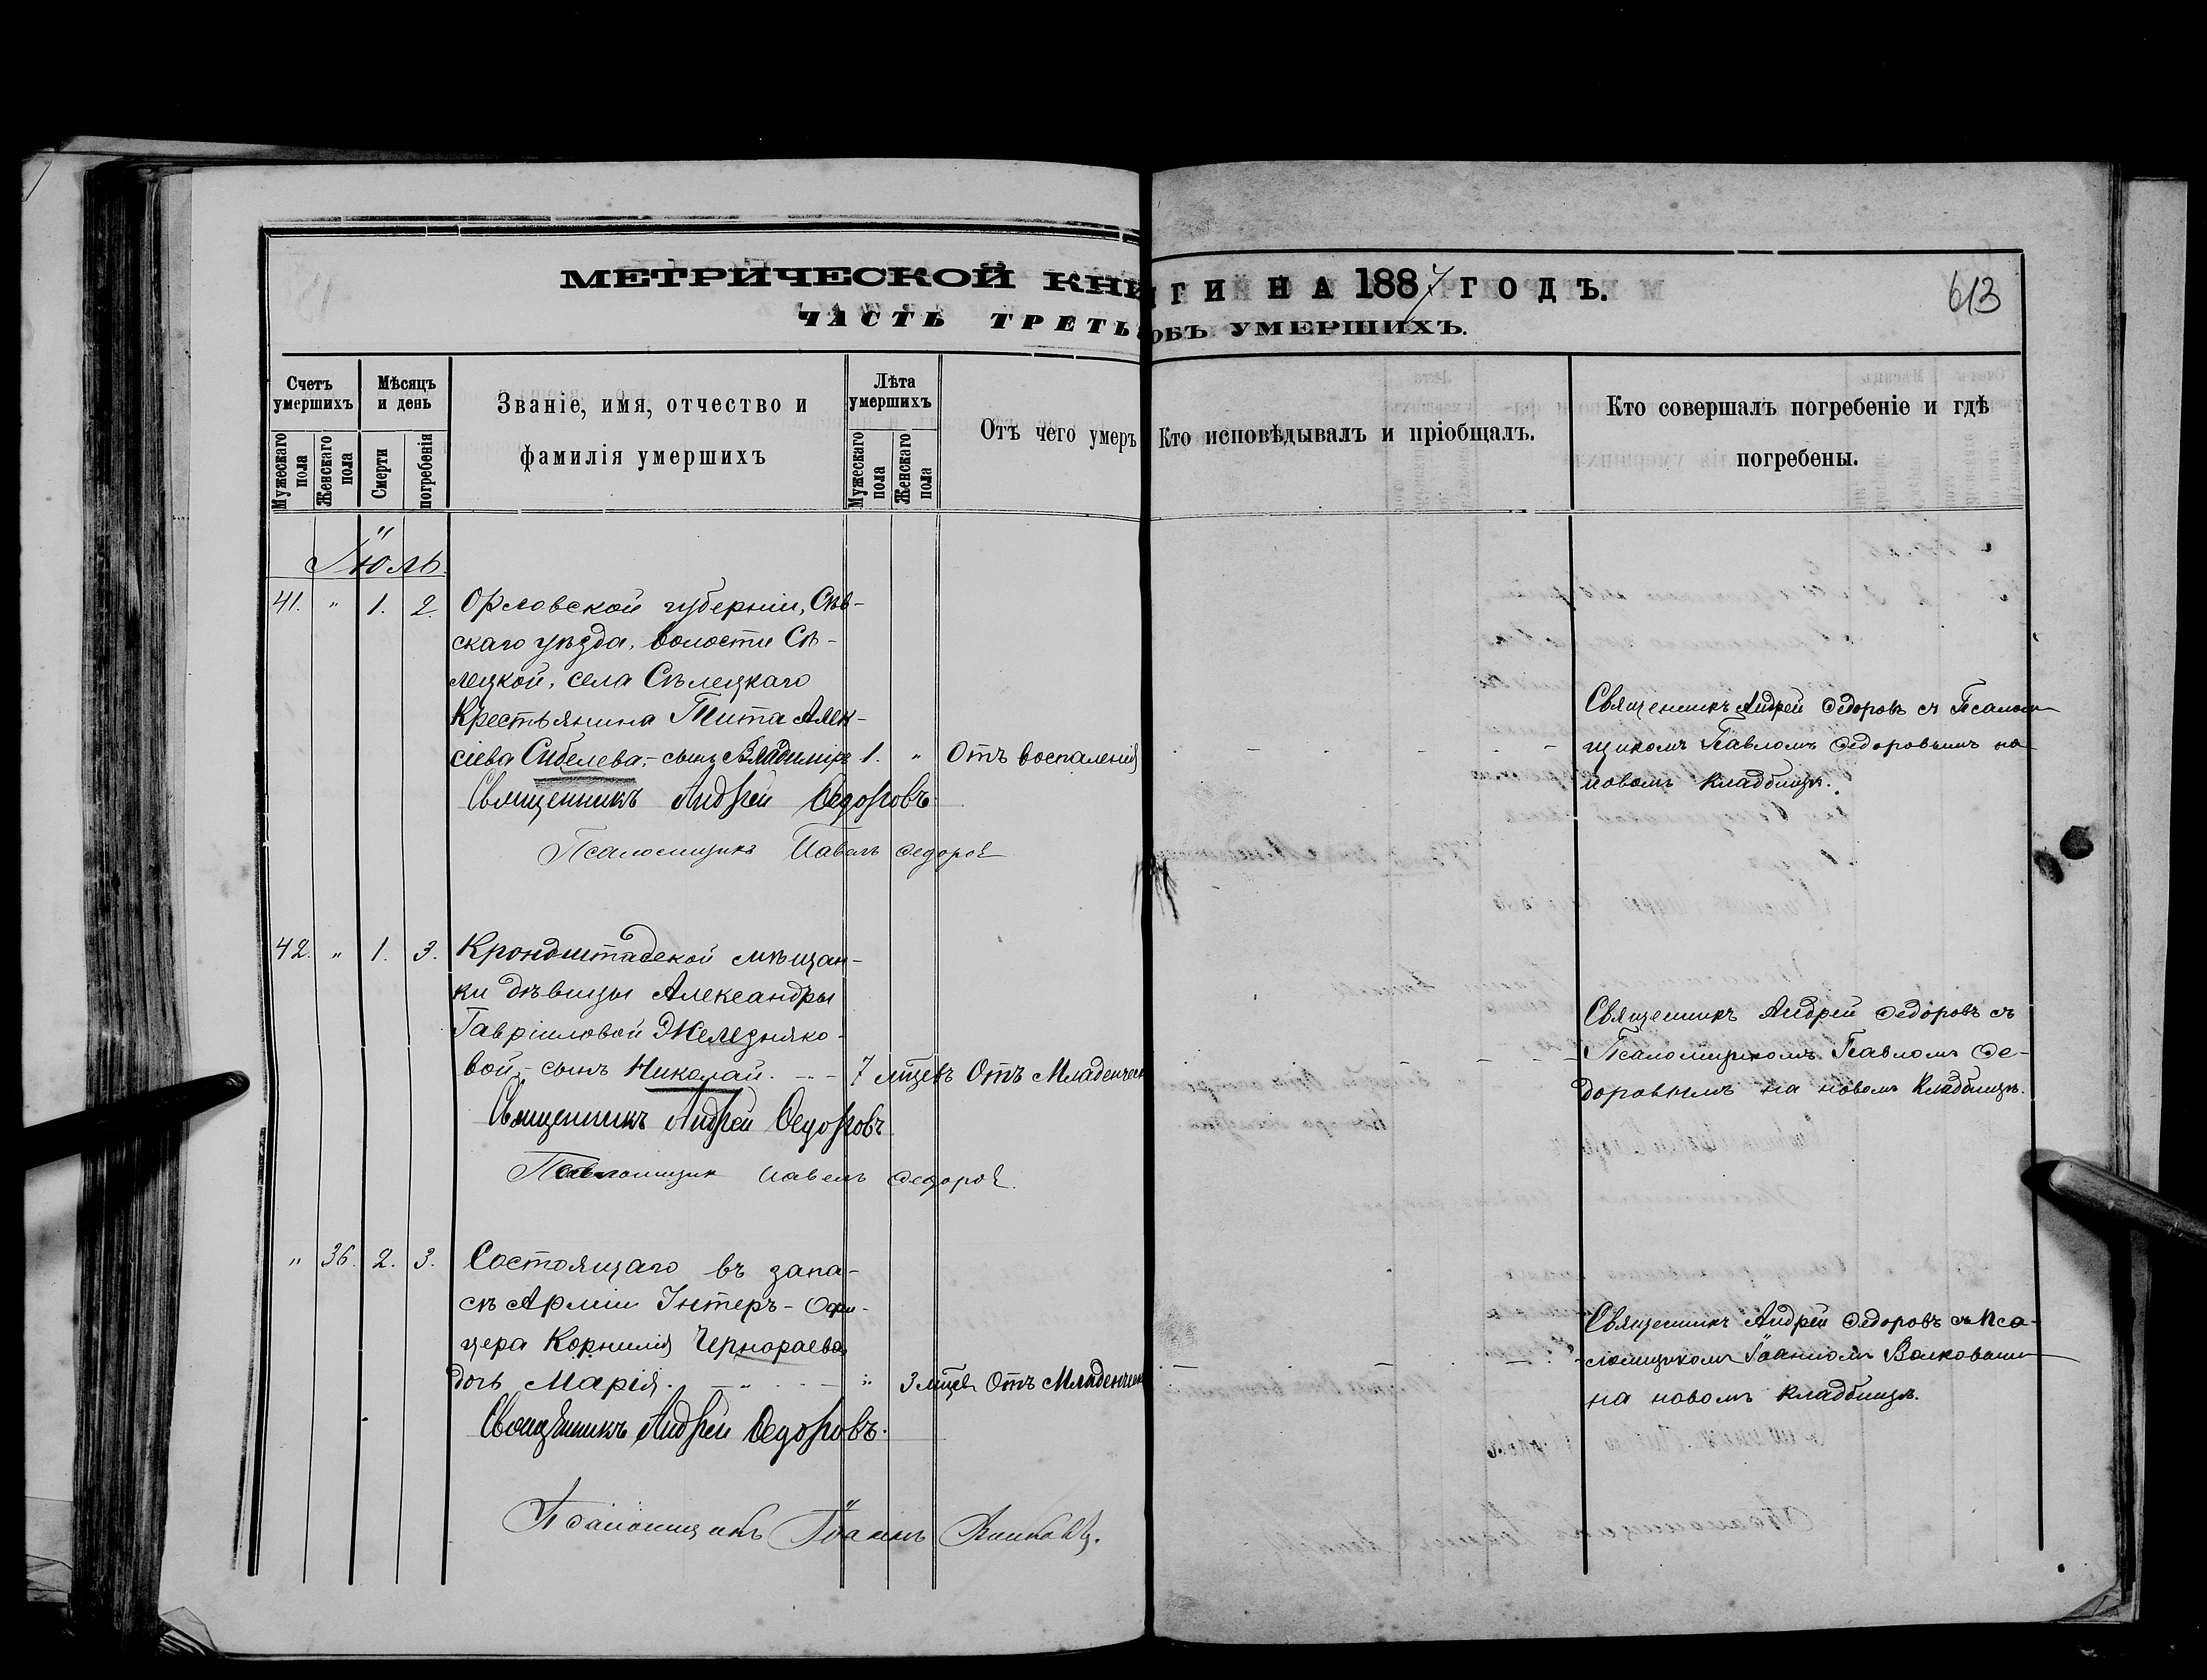 МЕТРИЧЕСКОЙ КНИГИ НА 1887 ГОДЪ.
613
ЧАСТЬ ТРЕТЬ ОБЪ УМЕРШИХЪ.
Счетъ умершихъ
Мѣсяцъ и день
Званіе, имя, отчество и фамилія умершихъ
Лѣта умершихъ
Отъ чего умеръ
Кто исповѣдывалъ и пріобщалъ.
Кто совершалъ погребеніе и гдѣ погребены.
Мужескаго пола
Женскаго пола
Смерти
погребенія
Мужескаго пола
Женскаго пола
Іюль
41. " 1. 2. Орловской губерніи, Сѣв-
скаго уѣзда, волости Сѣ-
лецкой, села Сѣлецкаго
Крестьянина Тита Алек-
сіева Сибелева,- сынъ Владиміръ 1. " Отъ воспаленія
Священникъ Андрей Ѳедоровъ съ Псалом-
щикомъ Павломъ Ѳедоровымъ на
новомъ кладбищѣ.
Священникъ Андрей Ѳедоровъ
Псаломщикъ Павелъ Ѳедоров
42. " 1. 3. Кронштадской мѣщан-
ки дѣвицы Александры
Гавріиловой Железняко-
вой,- сынъ Николай. 7 мцевъ Отъ Младенческ
Священникъ Андрей Ѳедоровъ съ
Псаломщикомъ Павломъ Ѳе-
доровымъ на новомъ кладбищѣ.
Священникъ Андрей Ѳедоровъ
Псаломщик Павелъ Ѳедоров.
" 36. 2. 3. Состоящаго въ запа-
сѣ Арміи Унтеръ-Офи-
цера Корнилія Чернораева
дочь Марія. " 3 мцев Отъ Младенческ
Священникъ Андрей Ѳедоровъ съ Пса-
ломщикомъ Іоанномъ Волковым
на новомъ кладбищѣ.
Священникъ Андрей Ѳедоровъ.
Псаломщикъ Іоаннъ